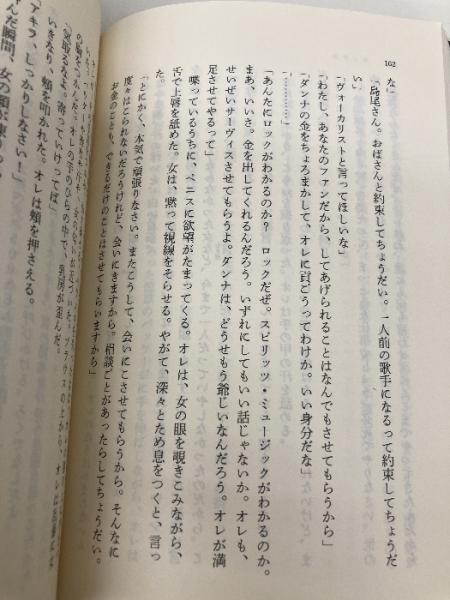 162
な」
「鳥尾さん。おばさんと約束してちょうだい。一人前の歌手になるって約束してちょうだ
い」
「ヴォーカリストと言ってほしいな」
「わたし、あなたのファンだから、してあげられることはなんでもさせてもらうから」
「ダンナの金をちょろまかして、オレに貢ごうってわけか。いい身分だな」
「…………」
「あんたにロックがわかるのか? ロックだぜ。スピリッツ・ミュージックがわかるのか。
まあ、いいさ。金を出してくれるんだろう。いずれにしてもいい話じゃないか。オレも、
せいぜいサーヴィスさせてもらうよ。ダンナは、どうせもう爺しいなんだろう。オレが満
足させてやるって」
喋っているうちに、ペニスに欲望がたまってくる。オレは、女の眼を覗きこみながら、
舌で上唇を舐めた。女は、黙って視線をそらせる。やがて、深々とため息をつくと、言っ
た。
「とにかく、本気で頑張りなさい。またこうして、会いにこさせてもらうから。そんなに
度々はこられないだろうけれど、会いにきますから。相談ごとがあったらしてちょうだい。
お金のことも、できるだけのことはさせてもらいますから」
「気取るなよ。寄っていけってば」
のひらの中で、乳房が歪んだ。
いきなり、頬を叩かれた。オレは頬を押さえる。
「アキラ、しっかりしなさい!」
んだ瞬間、女の頬が